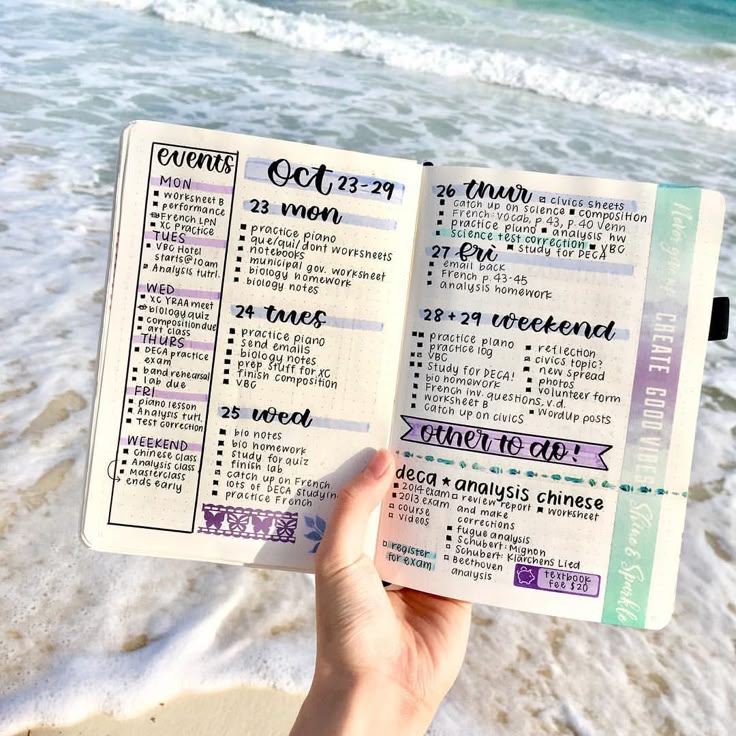 events
MON
worksheet B
performance
French LPN
XC practice
TUES
VBC Hotel
starts@10am
Analysis tutrl.
WED
XC YRAA meet
biology quiz
composition due
art class
THURS
DECA practice
exam
band rehearsal
lab due
FRI
piano lesson
Analysis tutl.
Test correction
WEEKEND
Chinese class
Analysis class
Masterclass
ends early
Oct 23-29
23 mon
practice piano
que/qui/dont worksheets
notebooks
municipal gov. worksheet
biology homework
biology notes
24 tues
practice piano
send emails
biology notes
prep stuff for XC
finish composition
VBC
25 wed
bio notes
bio homework
study for quiz
finish lab
catch up on French
lots of DECA studying
practice French
26 thur
civics sheets
catch up on science
composition
French: vocab, p.43, p.40 Venn
practice piano
analysis hw
Science test correction
VBC
study for DECA
27 fri
email back
French p.43-45
analysis homework
28 + 29 weekend
practice piano
practice log
VBC
Study for DECA!
bio homework
French inv. questions, v.d.
worksheet B
Catch up on civics
reflection
civics topic?
new spread
photos
volunteer form
Wordup posts
other to do!
deca ★ analysis chinese
2014 exam
2013 exam
course
videos
review report
and make
corrections
fugue analysis
Schubert: Mignon
Schubert: Klarchens Lied
Beethoven
analysis
worksheet
register
for exam
textbook
fee $20
CREATE GOOD VIBES
Shine & Sparkle